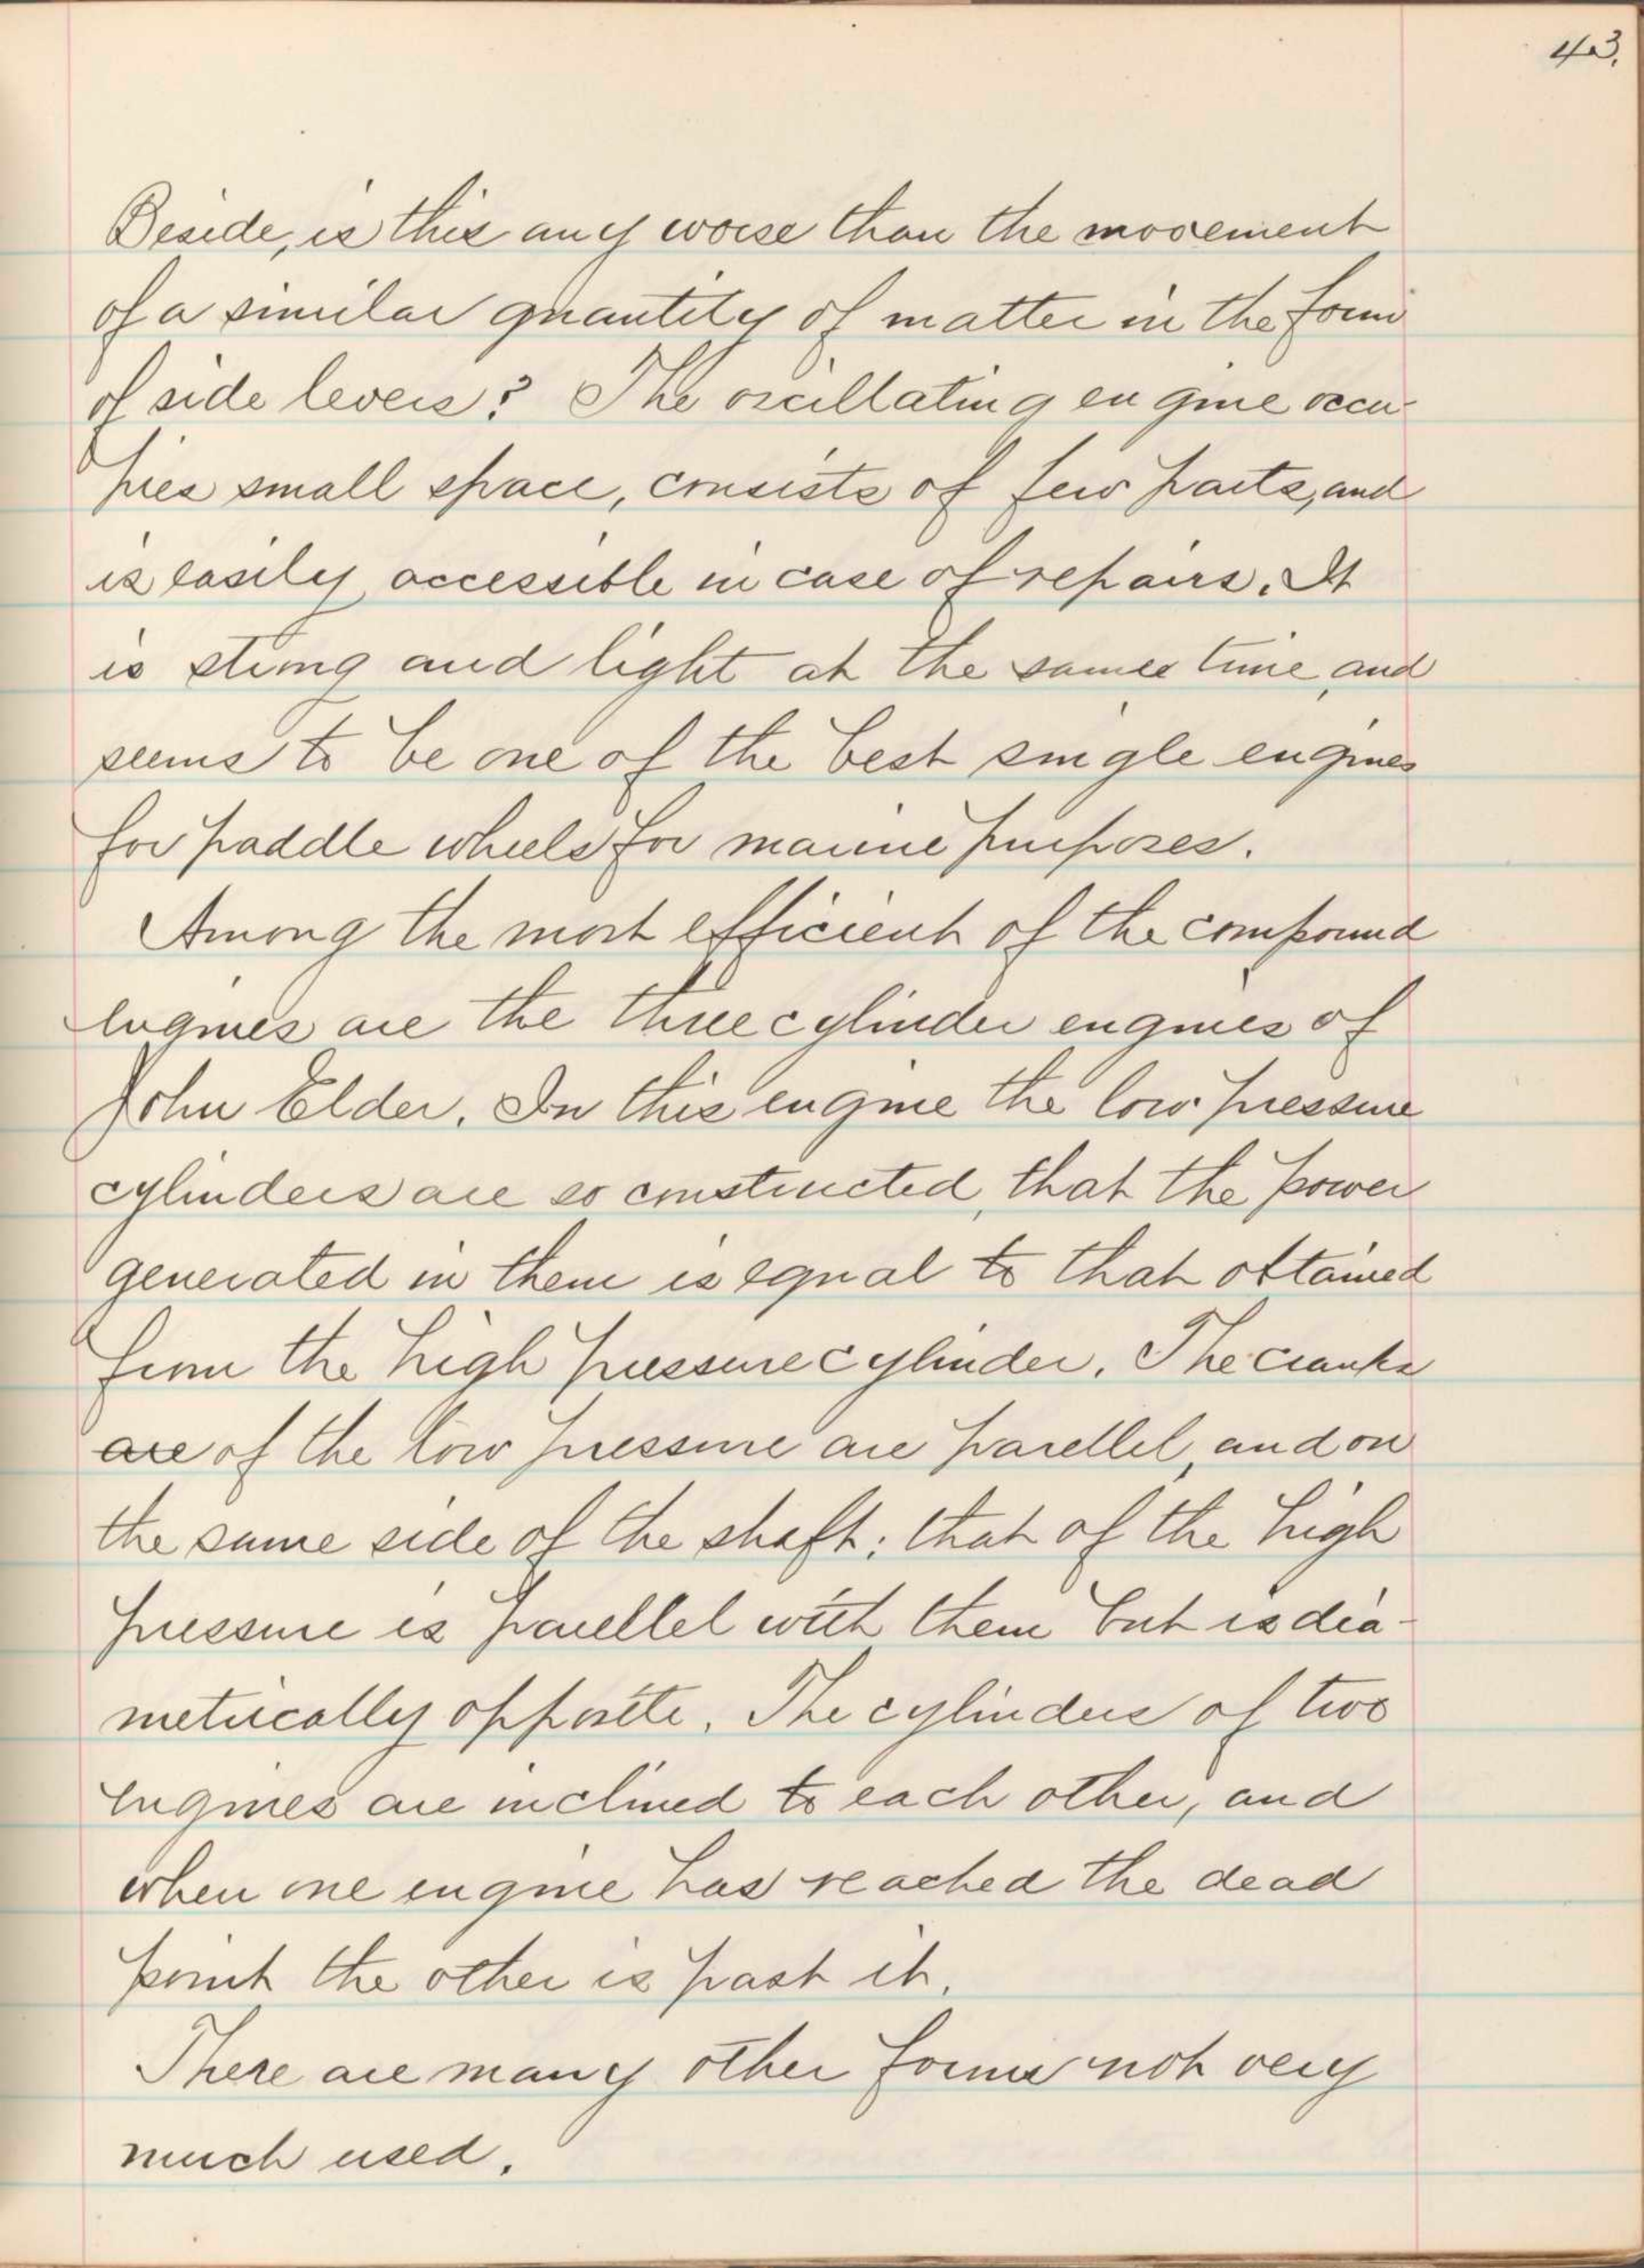 43.
Beside, is this any worse than the movement
of a similar quantity of matter in the form
of side levers? The oscillating engine occu-
pies small space, consists of few parts, and
is easily accessible in case of repairs. It
is strong and light at the same time, and
seems to be one of the best single engines
for paddle wheels for marine purposes.
Among the most efficient of the compound
engines are the three cylinder engines of
John Elder. In this engine the low pressure
cylinders are so constructed, that the power
generated in them is equal to that obtained
from the high pressure cylinder. The cranks
are of the low pressure are parellel, and on
the same side of the shaft; that of the high
pressure is parellel with them but is dia-
metrically opposite. The cylinders of two
engines are inclined to each other, and
when one engine has reached the dead
point the other is past it.
There are many other forms not very
much used.